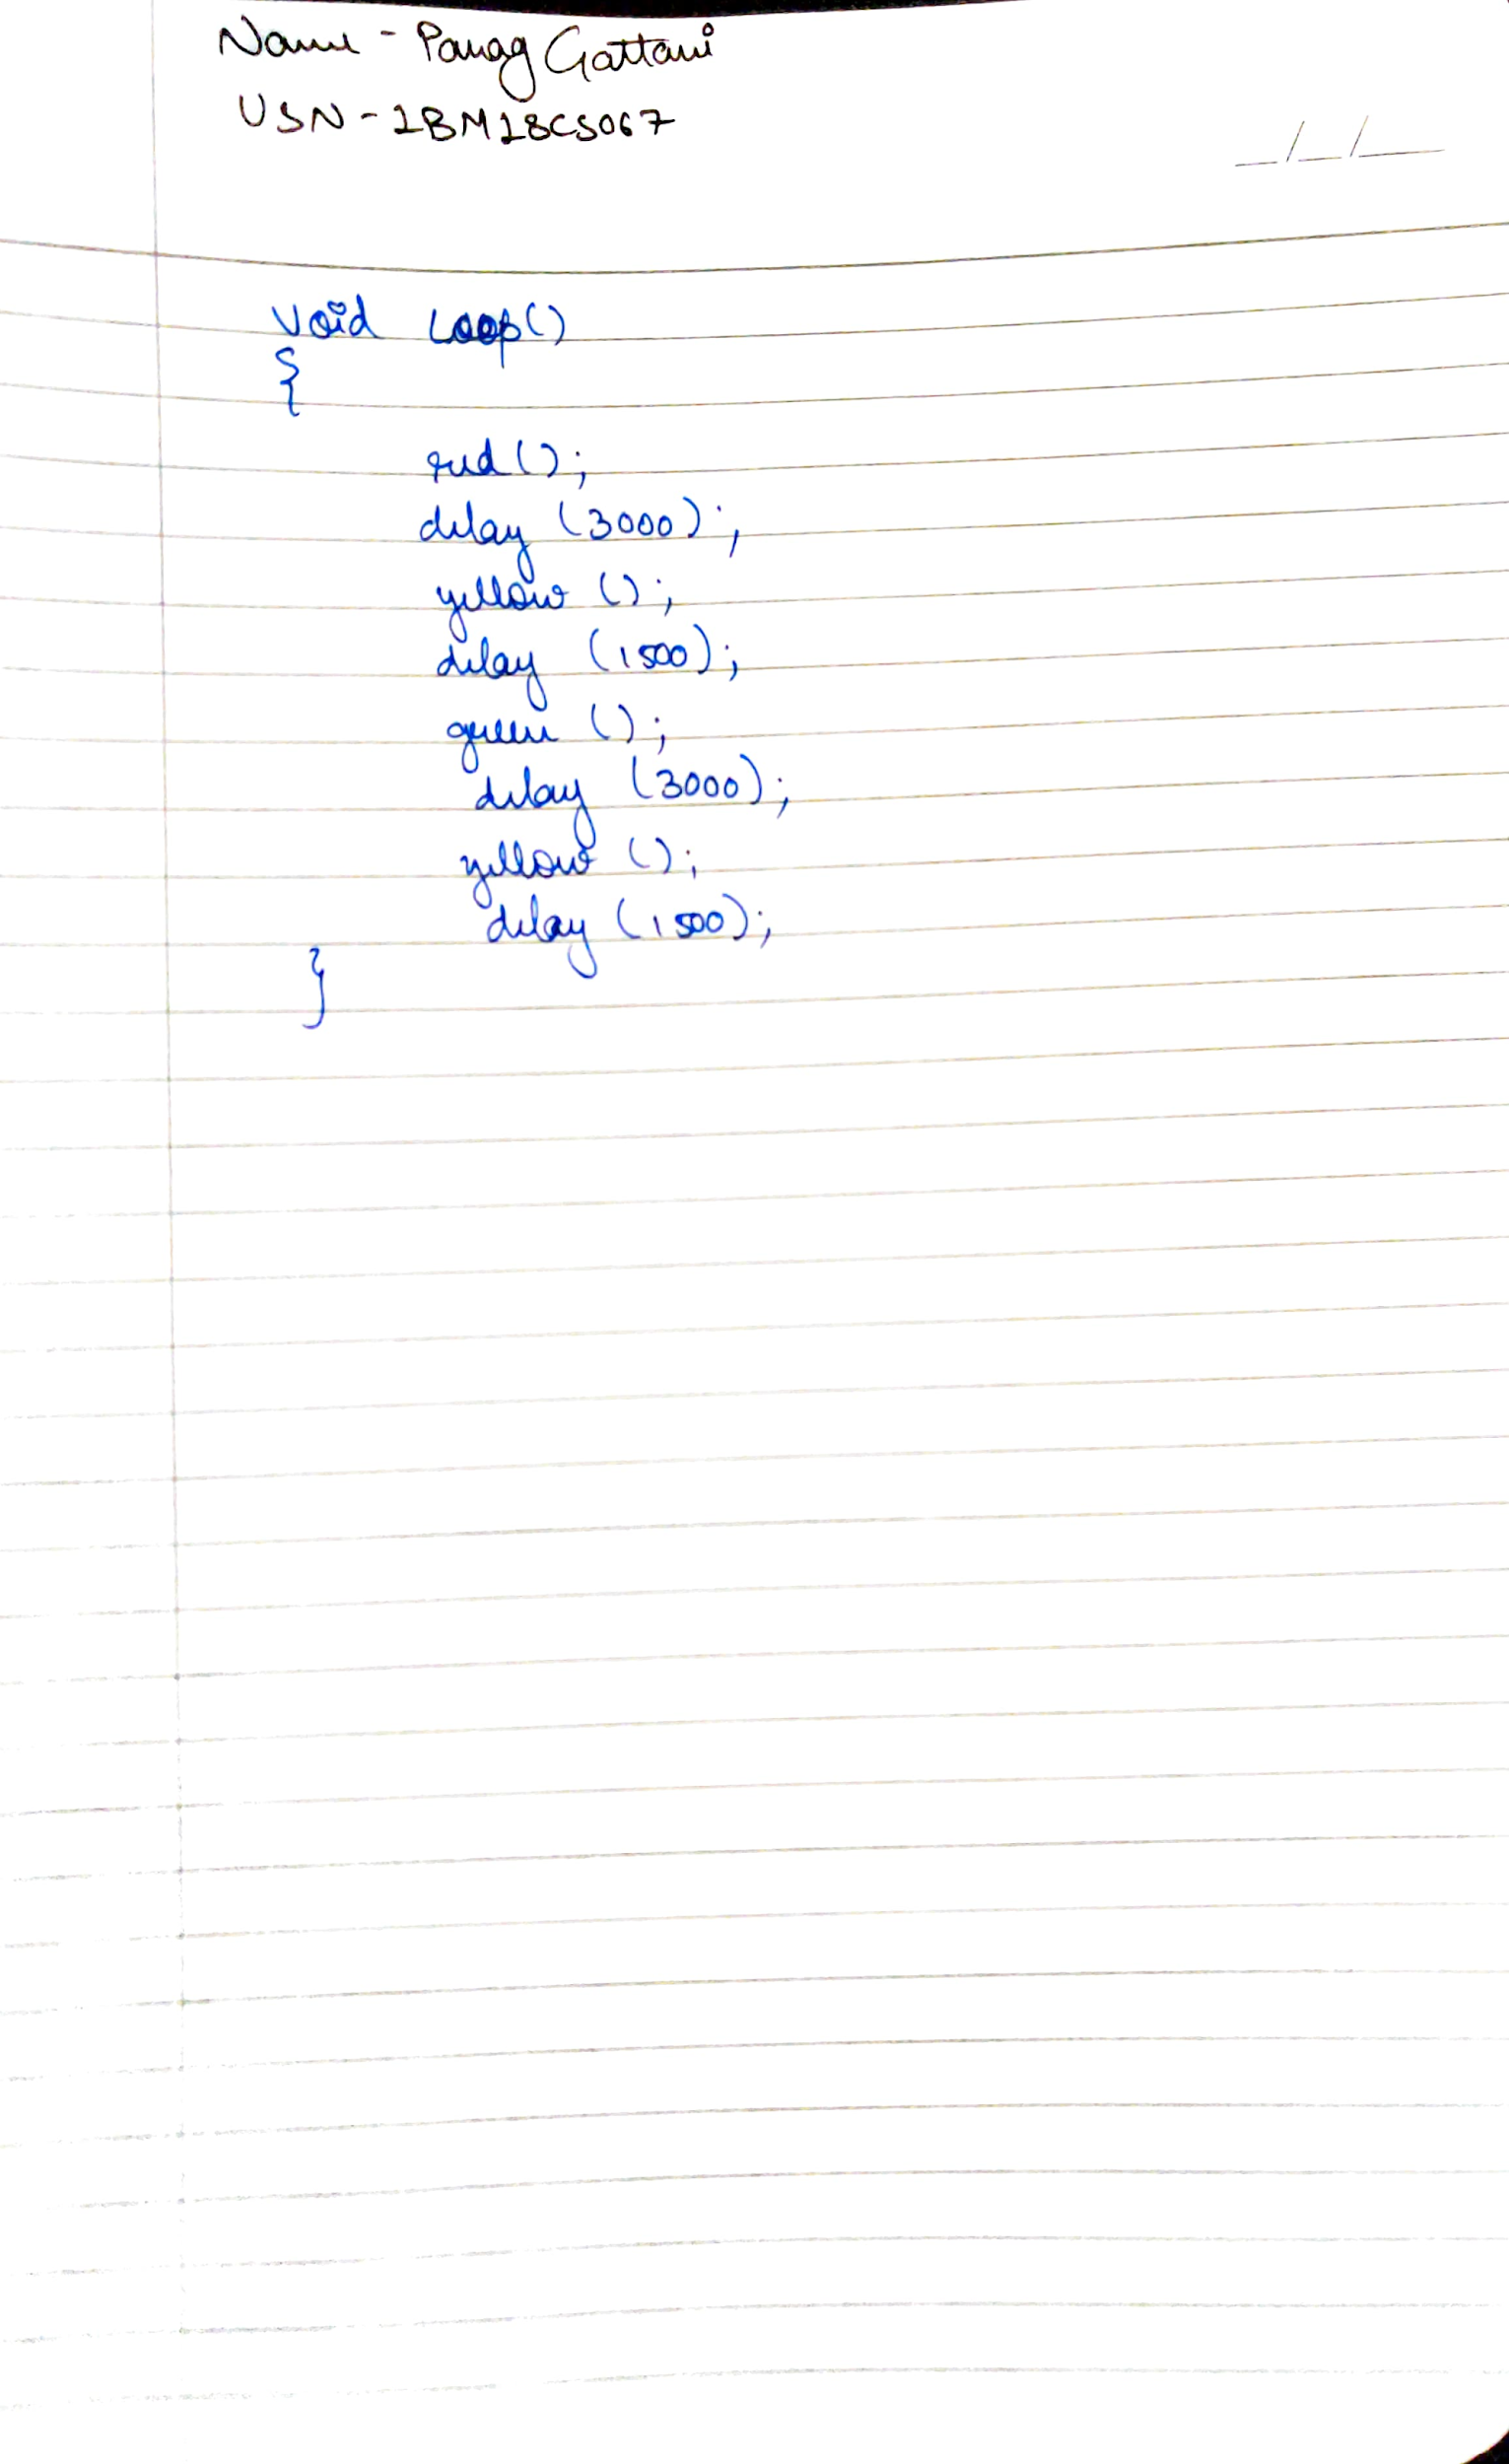 Name - Parag Gattani
USN - 1BM18CS067
_/_/_
void loop()
{
red();
delay (3000);
yellow ();
delay (1500);
green ();
delay (3000);
yellow ();
delay (1500);
}